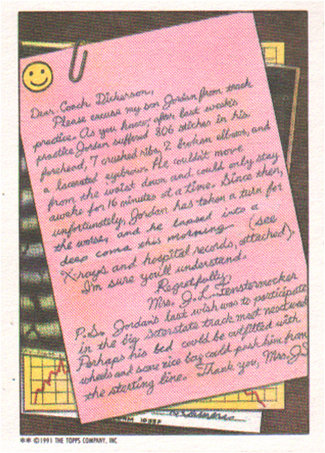 Dear Coach Dickerson,
Please excuse my son Jordan from track
practice. As you know, after last week's
practice Jordan suffered 806 stitches in his
forehead, 7 crushed ribs, 2 broken elbows, and
a lacerated eyebrow. He couldn't move
from the waist down and could only stay
awake for 16 minutes at a time. Since then,
unfortunately, Jordan has taken a turn for
the worse, and he lapsed into a
deep coma this morning. (see
X-rays and hospital records, attached).
I'm sure you'll understand.
Regretfully,
Mrs. J.L. Fenstermocker
P.S. Jordan's last wish was to participate
in the big interstate track meet next week.
Perhaps his bed could be outfitted with
wheels and some nice boy could push him from
the starting line. Thank you, Mrs. J.
** © 1991 THE TOPPS COMPANY, INC